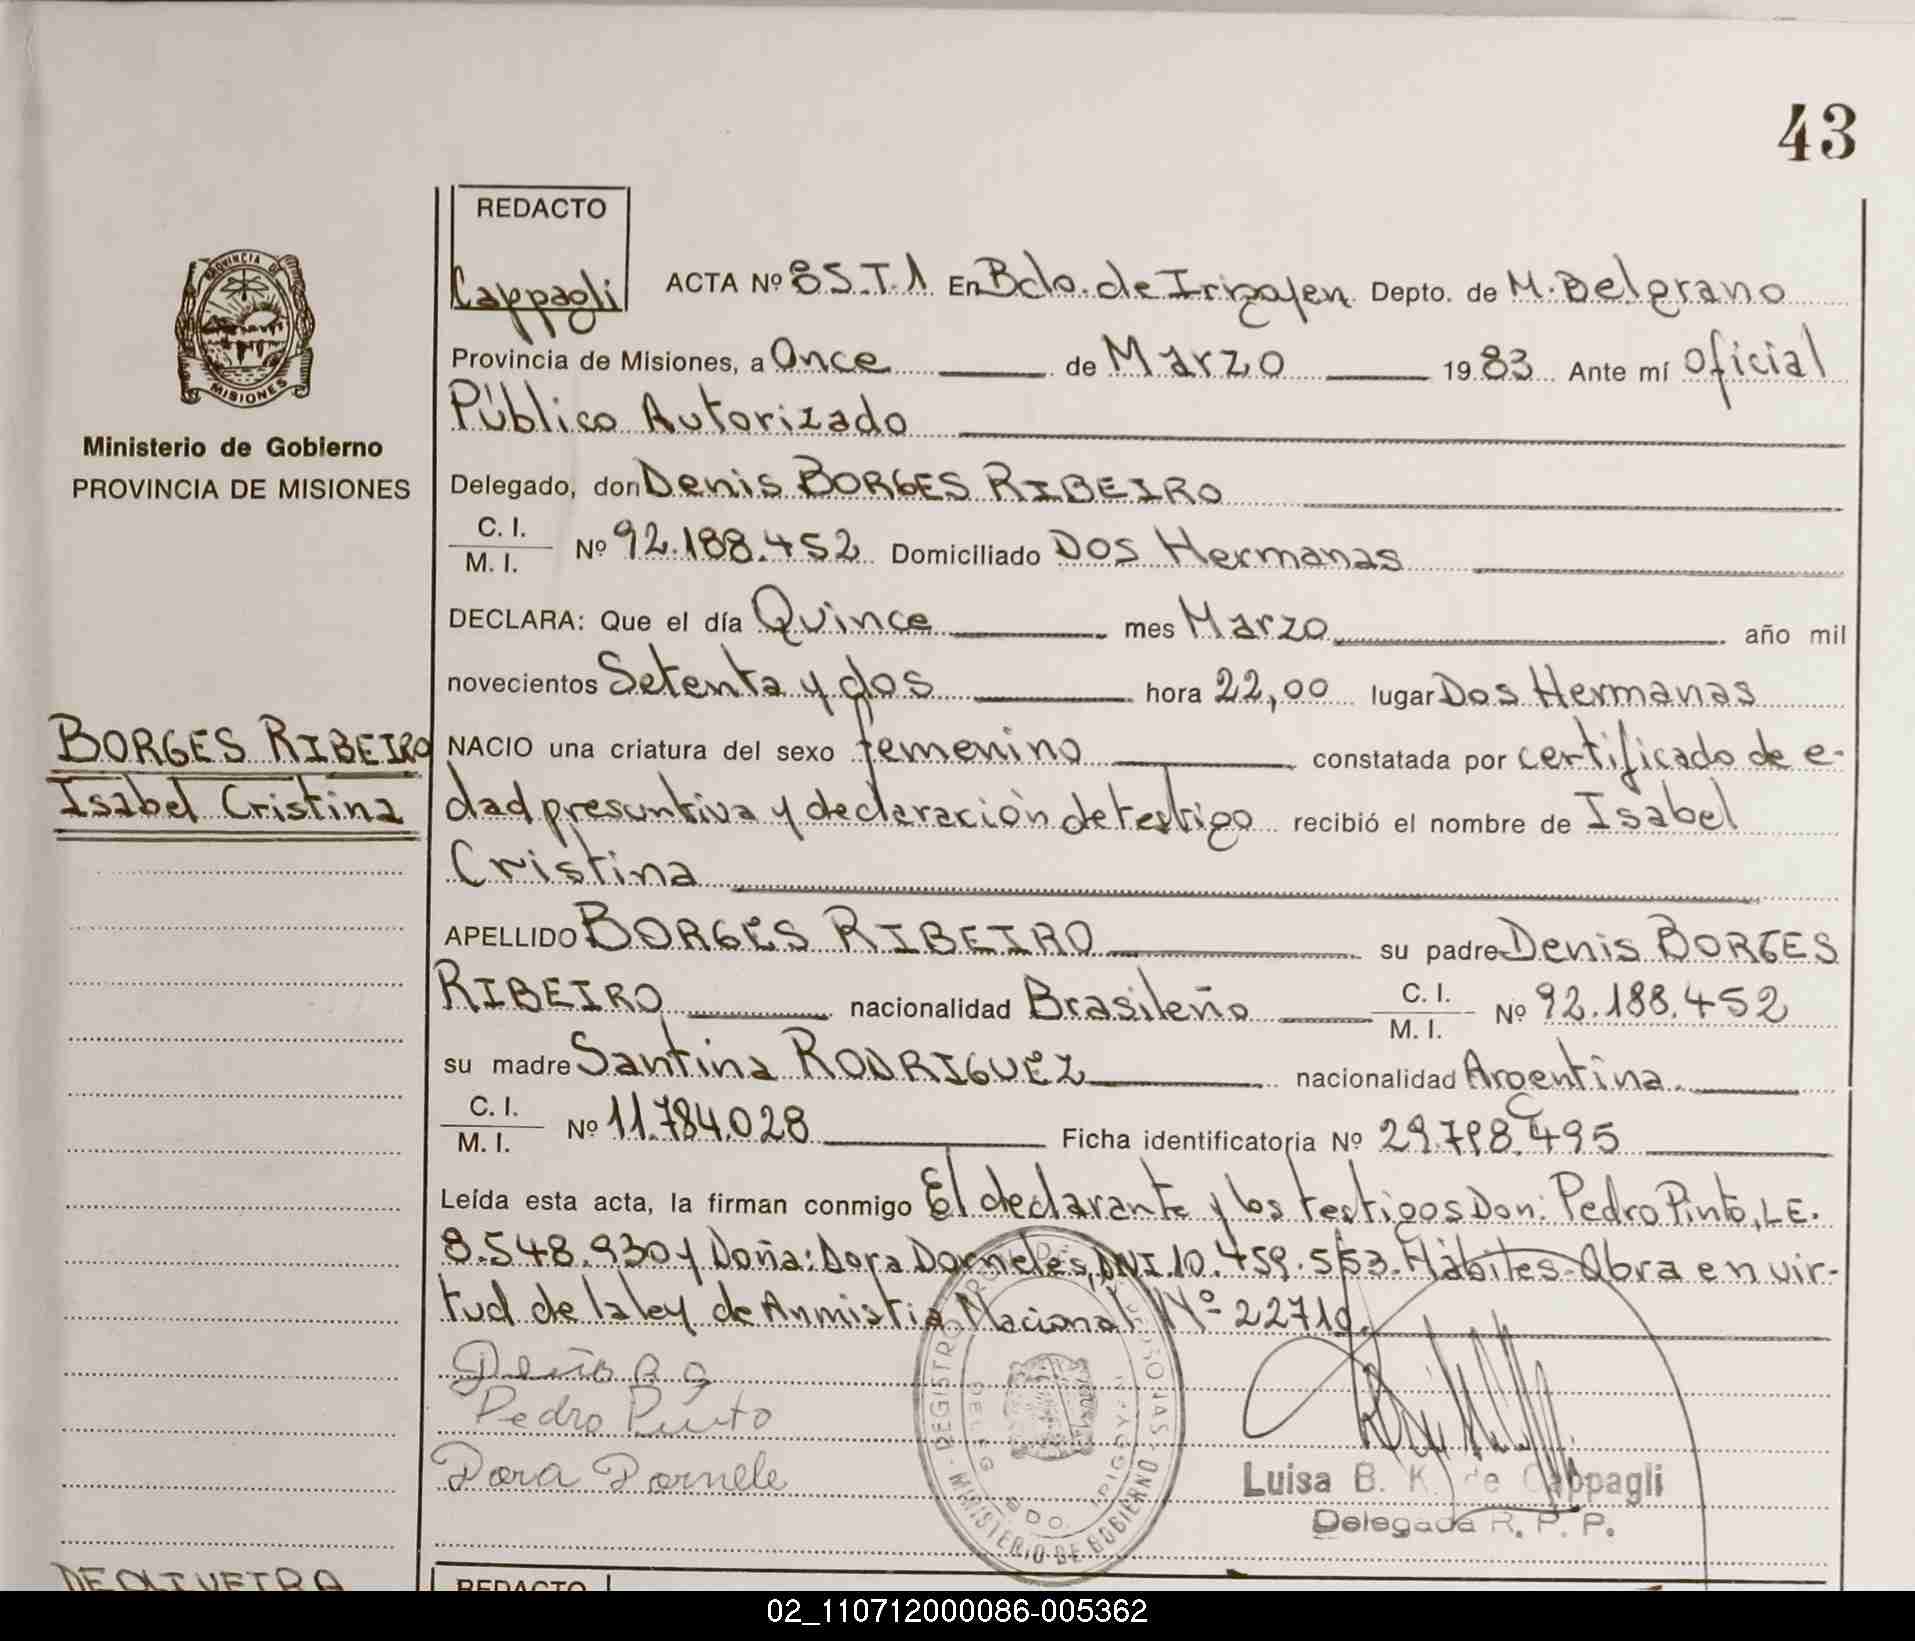 43
REDACTO
Cappagli
ACTA Nº 85.T.1 En Bdo. de Irigoyen Depto. de M. Belgrano
PROVINCIA DE
MISIONES
Provincia de Misiones, a Once de Marzo 1983 Ante mí Oficial
Público Autorizado
Ministerio de Gobierno
PROVINCIA DE MISIONES
Delegado, don Denis BORGES RIBEIRO
C. I.
M. I. Nº 92.188.452 Domiciliado Dos Hermanas
DECLARA: Que el día Quince mes Marzo año mil
novecientos Setenta y dos hora 22,00 lugar Dos Hermanas
BORGES RIBEIRO
Isabel Cristina
NACIO una criatura del sexo femenino constatada por certificado de e-
dad presuntiva y declaraciòn de testigo recibió el nombre de Isabel
Cristina
APELLIDO BORGES RIBEIRO su padre Denis BORGES
RIBEIRO nacionalidad Brasileño C. I. M. I. Nº 92.188.452
su madre Santina RODRIGUEZ nacionalidad Argentina
C. I.
M. I. Nº 11.784.028 Ficha identificatoria Nº 29.798.495
Leída esta acta, la firman conmigo El declarante y los testigos Don: Pedro Pinto, LE.
8.548.930 y Doña: Dora Dorneles, DNI.10.459.553. Hàbiles-Obra en vir-
tud de la ley de Anmistia Nacional Nº 22710.
Pedro Pinto
Dora Dornele
MINISTERIO DE GOBIERNO
Luisa B. K. de Cappagli
Delegada R. P. P.
DE OLIVEIRA
REDACTO
02_110712000086-005362